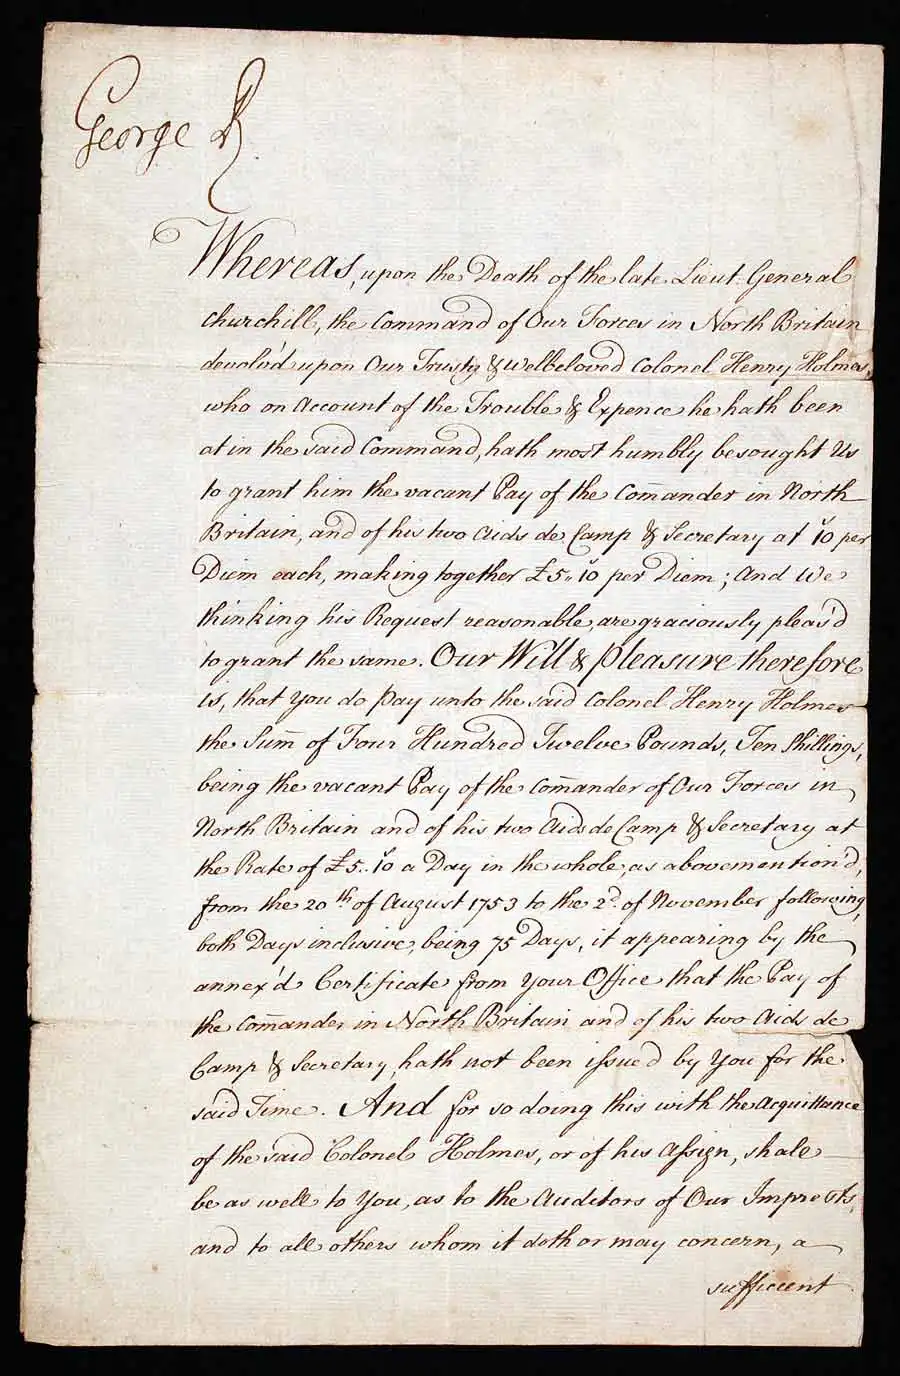 George R
Whereas, upon the Death of the late Lieut. General
Churchill, the Command of Our Forces in North Britain
devolv'd upon Our Trusty & Welbeloved Colonel Henry Holmes,
who on Account of the Trouble & Expence he hath been
at in the said Command, hath most humbly besought Us
to grant him the vacant Pay of the Com̄ander in North
Britain, and of his two Aids de Camp & Secretary at 10 per
Diem each, making together £5.. 10 per Diem; And We
thinking his Request reasonable, are graciously pleas'd
to grant the same. Our Will & Pleasure therefore
is, that You do Pay unto the said Colonel Henry Holmes
the Sum̄ of Four Hundred Twelve Pounds, Ten Shillings,
being the vacant Pay of the Com̄ander of Our Forces in
North Britain and of his two Aids de Camp & Secretary at
the Rate of £5.. 10 a Day in the whole, as abovemention'd,
from the 20th of August 1753 to the 2d. of November following,
both Days inclusive, being 75 Days, it appearing by the
annex'd Certificate from Your Office that the Pay of
the Com̄ander in North Britain and of his two Aids de
Camp & Secretary, hath not been issued by You for the
said Time. And for so doing this with the Acquittance
of the said Colonel Holmes, or of his Assign, shall
be as well to You, as to the Auditors of Our Imprests,
and to all others whom it doth or may concern, a
sufficient